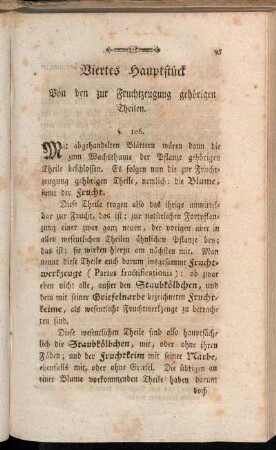 95
Viertes Hauptstück
Von den zur Fruchtzeugung gehörigen
Theilen.
§. 106.
Mit abgehandelten Blättern wären dann die
zum Wachsthume der Pflanze gehörigen
Theile beschlossen. Es folgen nun die zur Frucht-
zeugung gehörigen Theile, nemlich: die Blume,
samt der Frucht.
Diese Theile tragen also das ihrige unmittel-
bar zur Frucht, das ist: zur natürlichen Fortpflan-
zung einer zwar ganz neuen, der vorigen aber in
allen wesentlichen Theilen ähnlichen Pflanze bey;
das ist: sie wirken hierzu am nächsten mit. Man
nennt diese Theile auch darum zusammen Frucht-
werkzeuge (Partes fructificationis): ob zwar
eben nicht alle, außer den Staubkölbchen, und
dem mit seiner Griefelnarbe bezeichneten Frucht-
keime, als wesentliche Fruchtwerkzeuge zu betrach-
ten sind.
Diese wesentlichen Theile sind also hauptsäch-
lich die Staubkölbchen, mit, oder ohne ihren
Fäden; und der Fruchtkeim mit seiner Narbe,
ebenfalls mit, oder ohne Griefel. Die übrigen an
einer Blume vorkommenden Theile haben darum
doch